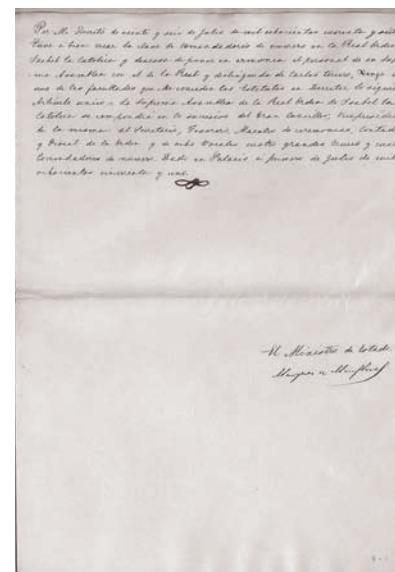 Por Mi Decreto de veinte y seis de Julio de mil ochocientos cuarenta y siete
tuve a bien crear la clase de Comendadores de número en la Real Orden
Isabel la Católica y deseoso de poner en armonia el personal de su Su
ma Asamblea con el de la Real y distinguida de Carlos tercero, Vengo
uso de las facultades que Me conceden los Estatutos en Decretar lo siguie
Artículo único = La Suprema Asamblea de la Real Orden de Isabel la
Católica se compondrá en lo sucesivo del Gran Canciller, Vicepreside
de la misma del Secretario, Tesorero, Maestro de ceremonias, Contado
y Fiscal de la Orden y de ocho Vocales cuatro grandes Cruces y cuat
Comendadores de número. Dado en Palacio a primero de Julio de mil
ochocientos cincuenta y uno.
El Ministro de Estado.
Marques de Miraflores